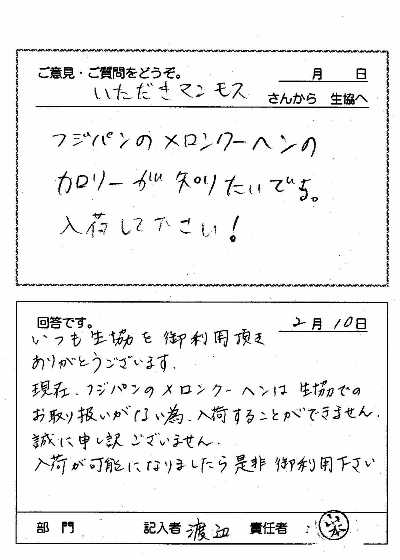 ご意見・ご質問をどうぞ。 月 日
いただきマンモス さんから 生協へ
フジパンのメロンクーヘンの
カロリーが知りたいです。
入荷して下さい!
回答です。 2月10日
いつも生協を御利用頂き
ありがとうございます.
現在、フジパンのメロンクーヘンは生協での
お取り扱いがない為、入荷することができません.
誠に申し訳ございません.
入荷が可能になりましたら是非御利用下さい
部門 記入者 渡辺 責任者 山本